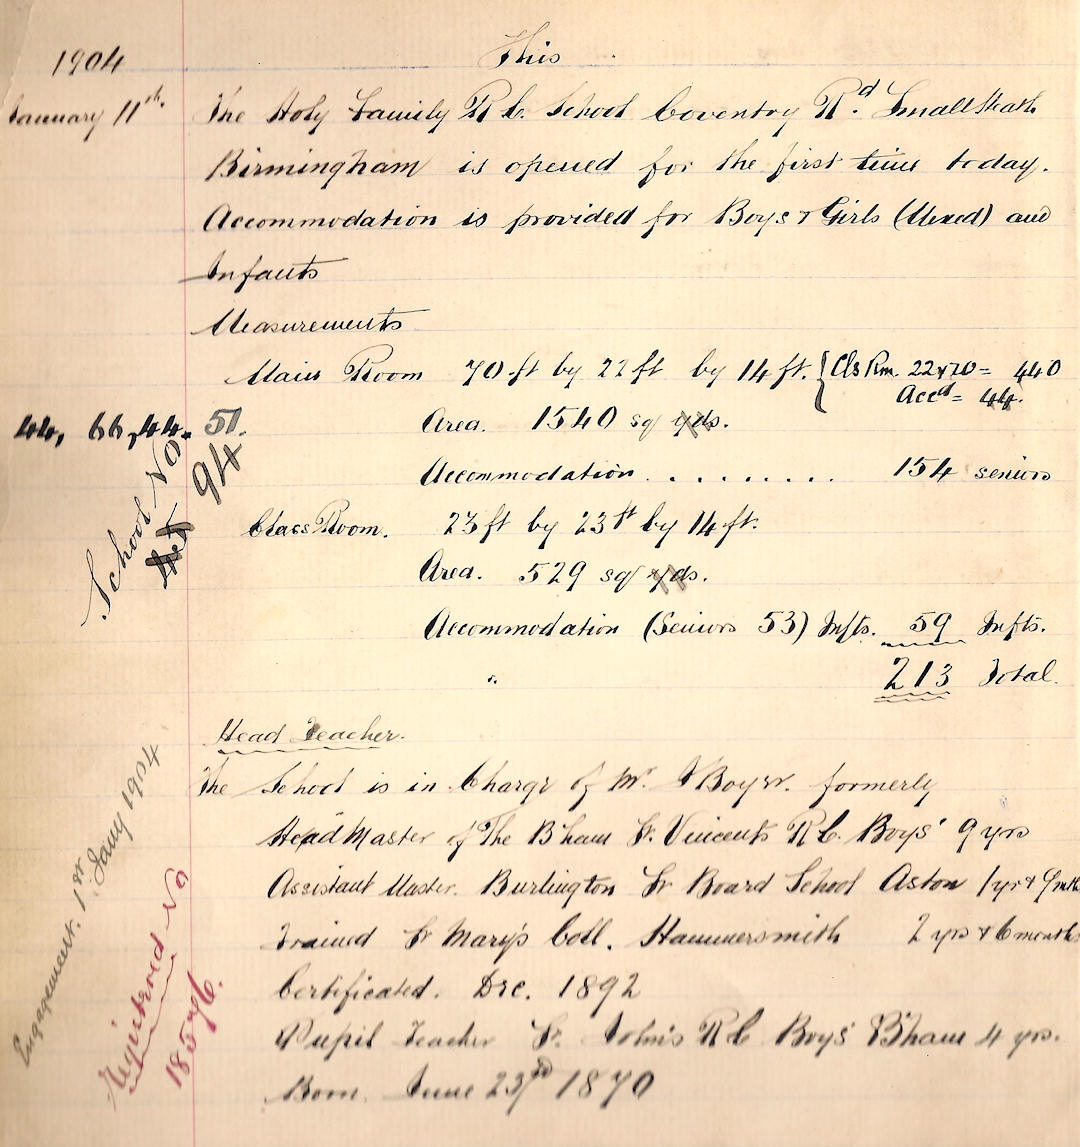 1904
This
January 11th.
The Holy Family R.C. School Coventry Rd. Small Heath
Birmingham is opened for the first time today.
Accommodation is provided for Boys & Girls (Mixed) and
Infants
Measurements
Main Room 70 ft by 22 ft by 14 ft. { Cls Rm. 22 x 20 = 440
Accd = 44.
44, 66, 44. 51.
Area. 1540 sq yds.
Accommodation . . . . . . . . . 154 seniors
School No
94
Class Room. 23 ft by 23 ft by 14 ft.
Area. 529 sq yds.
Accommodation (Seniors 53) Infts. 59 Infts.
213 Total.
Head Teacher.
The School is in Charge of Mr. formerly
Head Master of The B'ham St. Vincent's R.C. Boys' 9 yrs
Assistant Master. Burlington St Board School Aston 1 yr &
Trained St Mary's Coll. Hammersmith 2 yrs & 6 months
Certificated. Dec. 1892
Pupil Teacher St. John's R C Boys' B'ham 4 yrs.
Born. June 23rd 1870
Engagement. 1st Jany 1904
Registered No